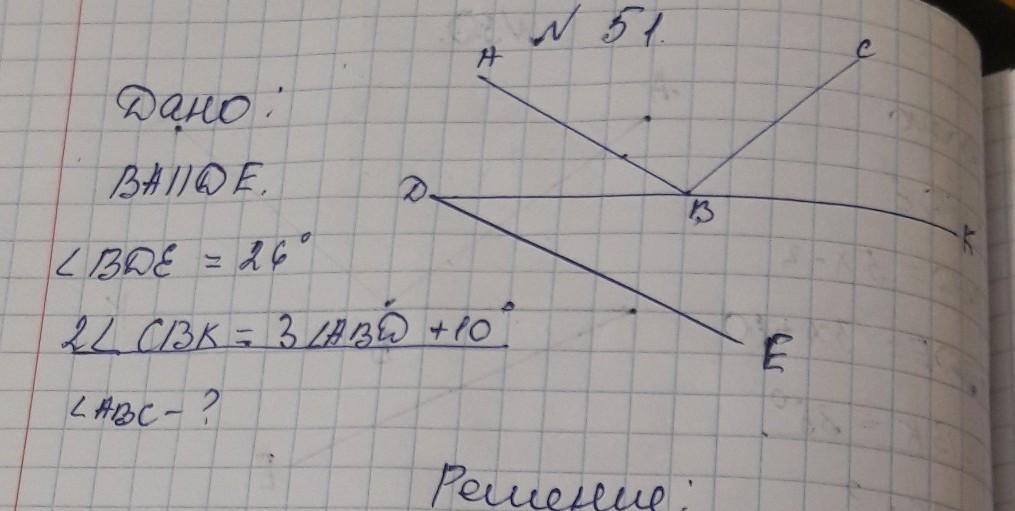 N 51.
A
C
Дано:
BA||DE.
D
B
K
∠BDE = 26°
2∠CBK = 3∠ABD + 10°
E
∠ABC - ?
Решение: